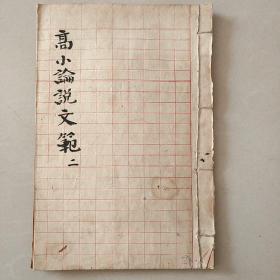 高小論說文範
二